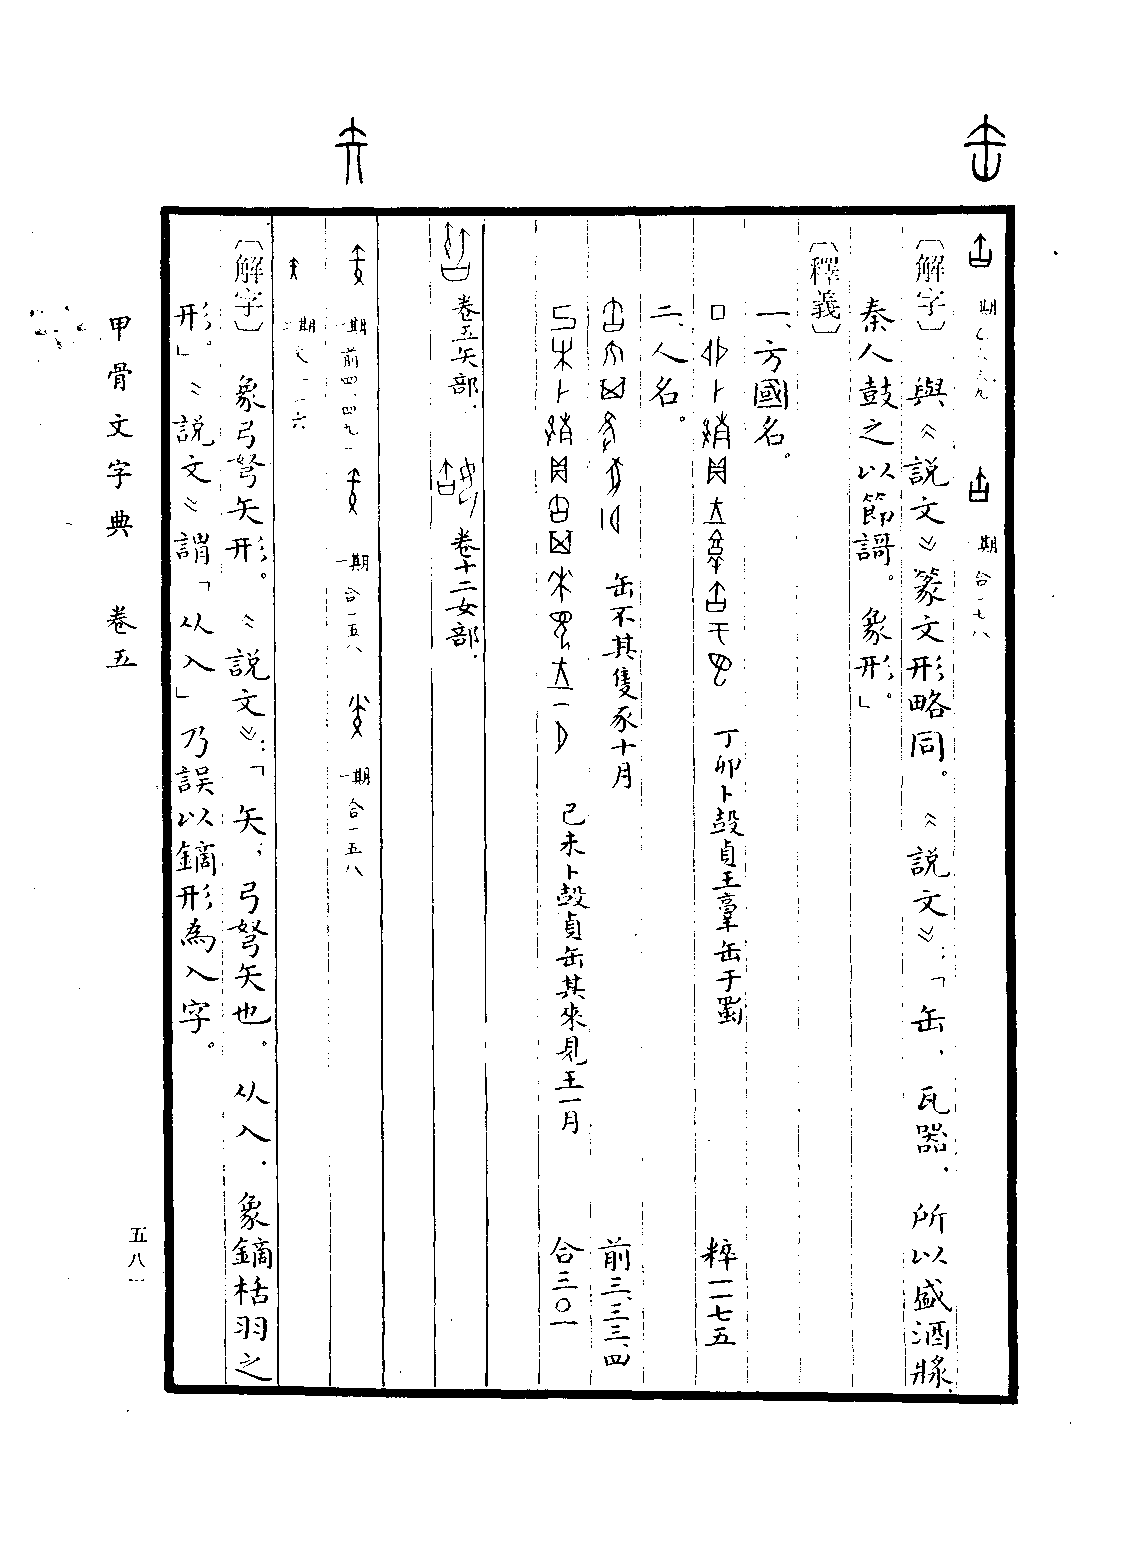 期
一期 合一七八
〔解字〕 與《説文》篆文形略同。《説文》：「缶，瓦器，所以盛酒漿，
秦人鼓之以節謌。象形。」
〔釋義〕
一、方國名。
丁卯卜㱿貞王𦎫缶于蜀 粹一一七五
二、人名。
缶不其隻豕十月 前三、三三、四
己未卜㱿貞缶其來見王一月 合三〇一
卷五矢部． 卷十二女部．
一期 前四、四九、一 一期 合一五八 一期 合一五八
期
〔解字〕 象弓弩矢形。《説文》：「矢，弓弩矢也。从入，象鏑栝羽之
形。」《説文》謂「从入」乃誤以鏑形為入字。
甲骨文字典 卷五
五八一